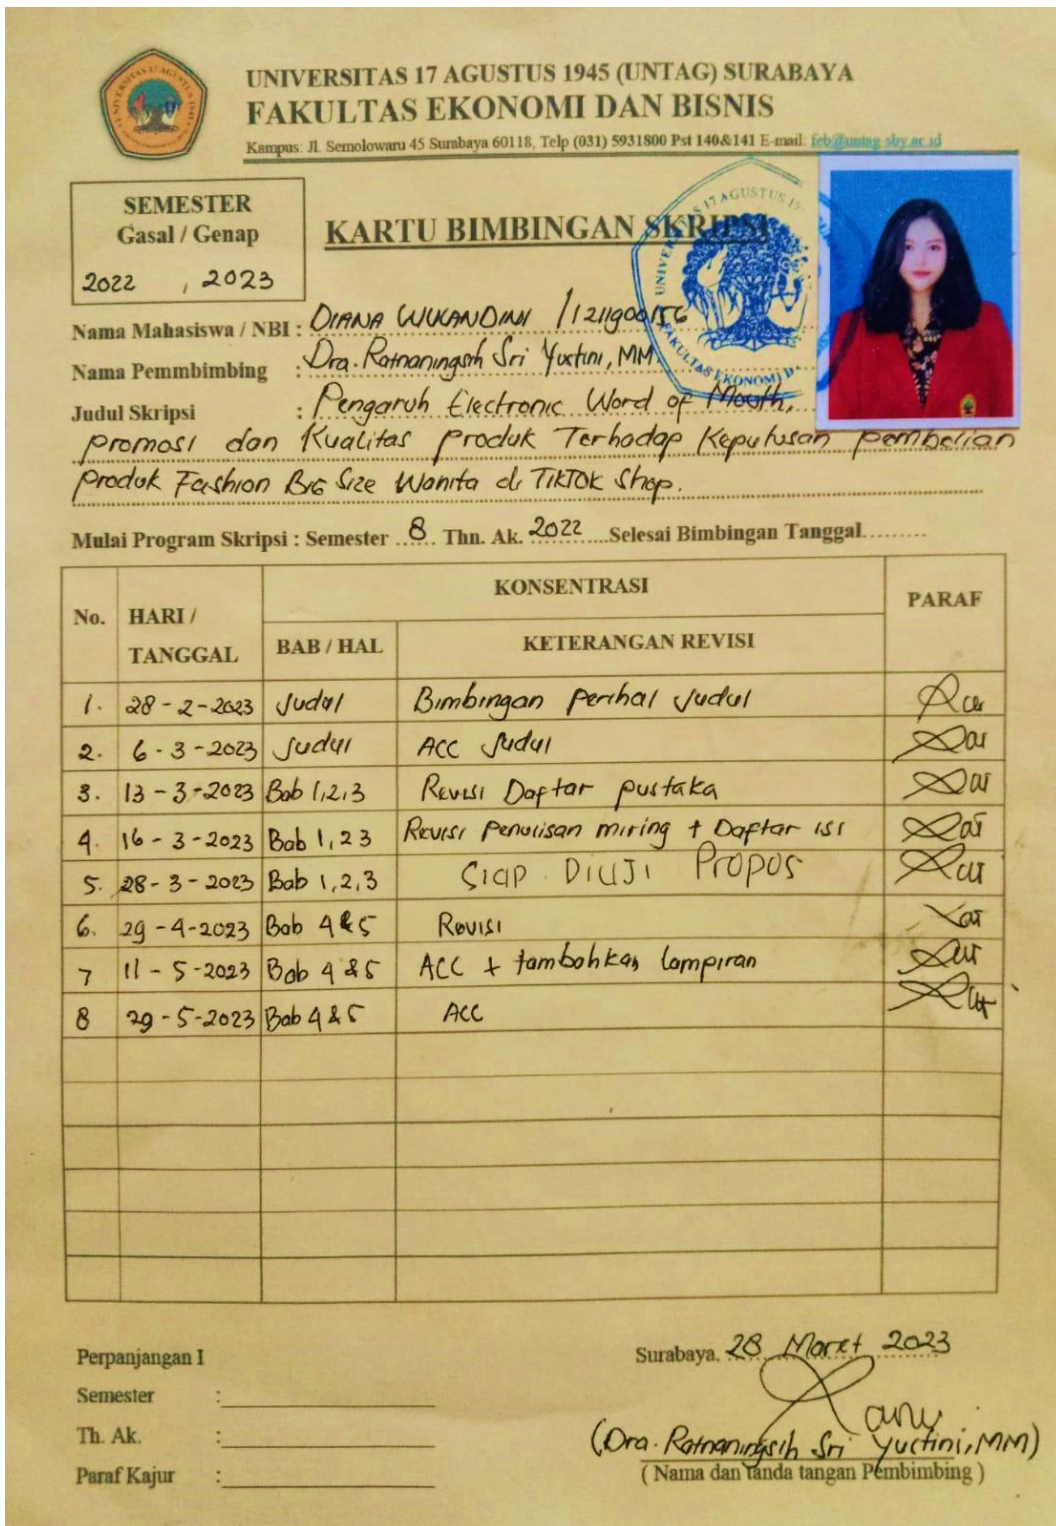 UNIVERSITAS 17 AGUSTUS 1945 (UNTAG) SURABAYA
FAKULTAS EKONOMI DAN BISNIS
Kampus: Jl. Semolowaru 45 Surabaya 60118, Telp (031) 5931800 Pst 140&141 E-mail: feb@untag-sby.ac.id
SEMESTER
Gasal / Genap
2022 , 2023
KARTU BIMBINGAN SKRIPSI
Nama Mahasiswa / NBI : DIANA WULANDINI / 1211900156
Nama Pemmbimbing : Dra. Ratnaningsih Sri Yustini, MM
Judul Skripsi : Pengaruh Electronic Word of Mouth,
promosi dan Kualitas produk Terhadap Keputusan pembelian
produk Fashion BIG Size Wanita di TikTok Shop.
Mulai Program Skripsi : Semester 8 Thn. Ak. 2022 Selesai Bimbingan Tanggal.........
No. HARI / TANGGAL KONSENTRASI PARAF
BAB / HAL KETERANGAN REVISI
1. 28 - 2 - 2023 Judul Bimbingan perihal Judul
2. 6 - 3 - 2023 Judul ACC Judul
3. 13 - 3 - 2023 Bab 1,2,3 Revisi Daftar pustaka
4. 16 - 3 - 2023 Bab 1,2 3 Revisi penulisan miring + Daftar isi
5. 28 - 3 - 2023 Bab 1,2,3 SIAP DIUJI PROPOS
6. 29 - 4 - 2023 Bab 4 & 5 Revisi
7 11 - 5 - 2023 Bab 4 & 5 ACC + tambahkan lampiran
8 29 - 5 - 2023 Bab 4 & 5 ACC
Perpanjangan I
Semester :
Th. Ak. :
Paraf Kajur :
Surabaya, 28 Maret 2023
(Dra. Ratnaningsih Sri Yustini, MM)
( Nama dan tanda tangan Pembimbing )